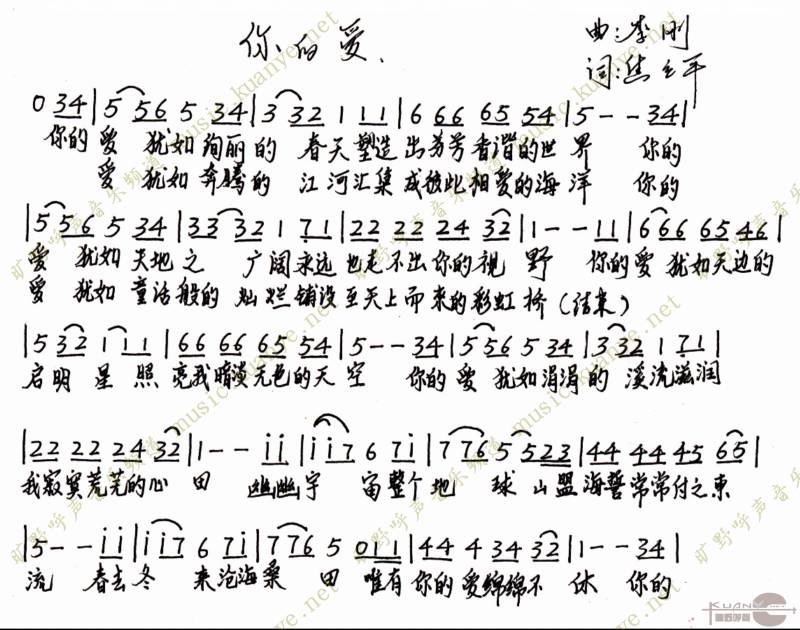 你的爱、
曲:李刚
词:焦之平
0 34 | 5 56 5 34 | 3 32 1 11 | 6 66 65 54 | 5 - - 34 |
你的 爱 犹如绚丽的 春天塑造出芬芳香谐的世界 你的
爱 犹如奔腾的 江河汇集成彼此相爱的海洋 你的
| 5 56 5 34 | 33 32 1 71 | 22 22 24 32 | 1 - - 11 | 666 65 46 |
爱 犹如天地之 广阔永远也走不出你的视野 你的爱犹如天边的
爱 犹如童话般的灿烂铺设至天上而来的彩虹桥(结束)
| 5 32 1 11 | 66 66 65 54 | 5 - - 34 | 5 56 5 34 | 3 32 1 71 |
启明星照亮我暗淡无色的天空 你的爱犹如涓涓的溪流滋润
| 22 22 24 32 | 1 - - ii | ii7 6 7i | 776 5 523 | 44 44 45 65 |
我寂寞荒芜的心田 幽幽宇宙整个地球山盟海誓常常付之东
| 5 - - ii | ii7 6 7i | 776 5 011 | 44 4 34 32 | 1 - - 34 |
流 春去冬来沧海桑田唯有你的爱绵绵不休 你的
旷野呼声音乐频道 music.kuanye.net
KUANYE.NET
旷野呼声